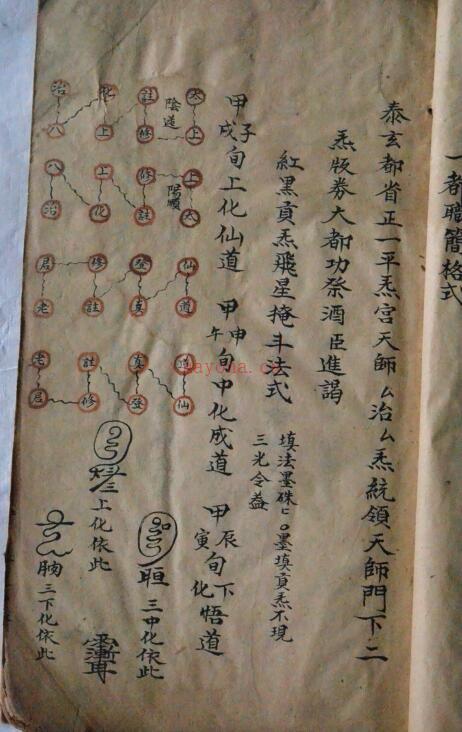 一都職簡格式
泰玄都省正一平炁宮天師厶治厶炁統領天師門下二
炁版券大都功祭酒臣進謁
紅黑貢炁飛星掩斗法式
填法墨硃ヒ〇墨填貢炁不現
三光令益
甲子戌旬上化仙道 甲申午旬中化成道 甲辰寅旬下化悟道
太上 陰逆 註修 化上 治八
上太 陽順 修註 上化 八治
仙道 登真 修註 君老
道仙 真登 註修 老君
上化依此
三中化依此
三下化依此